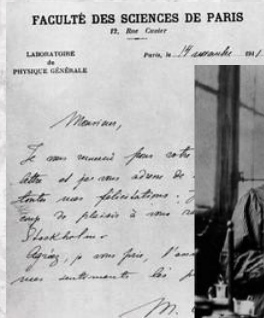 FACULTÉ DES SCIENCES DE PARIS
12, Rue Cuvier
LABORATOIRE
de
PHYSIQUE GÉNÉRALE
Paris, le 14 novembre 191
Monsieur,
Je vous remercie pour votre
lettre et je vous adresse de
toutes mes félicitations.
coup de plaisir à vous
Stockholm
Agréez, je vous prie,
mes sentiments les
M.